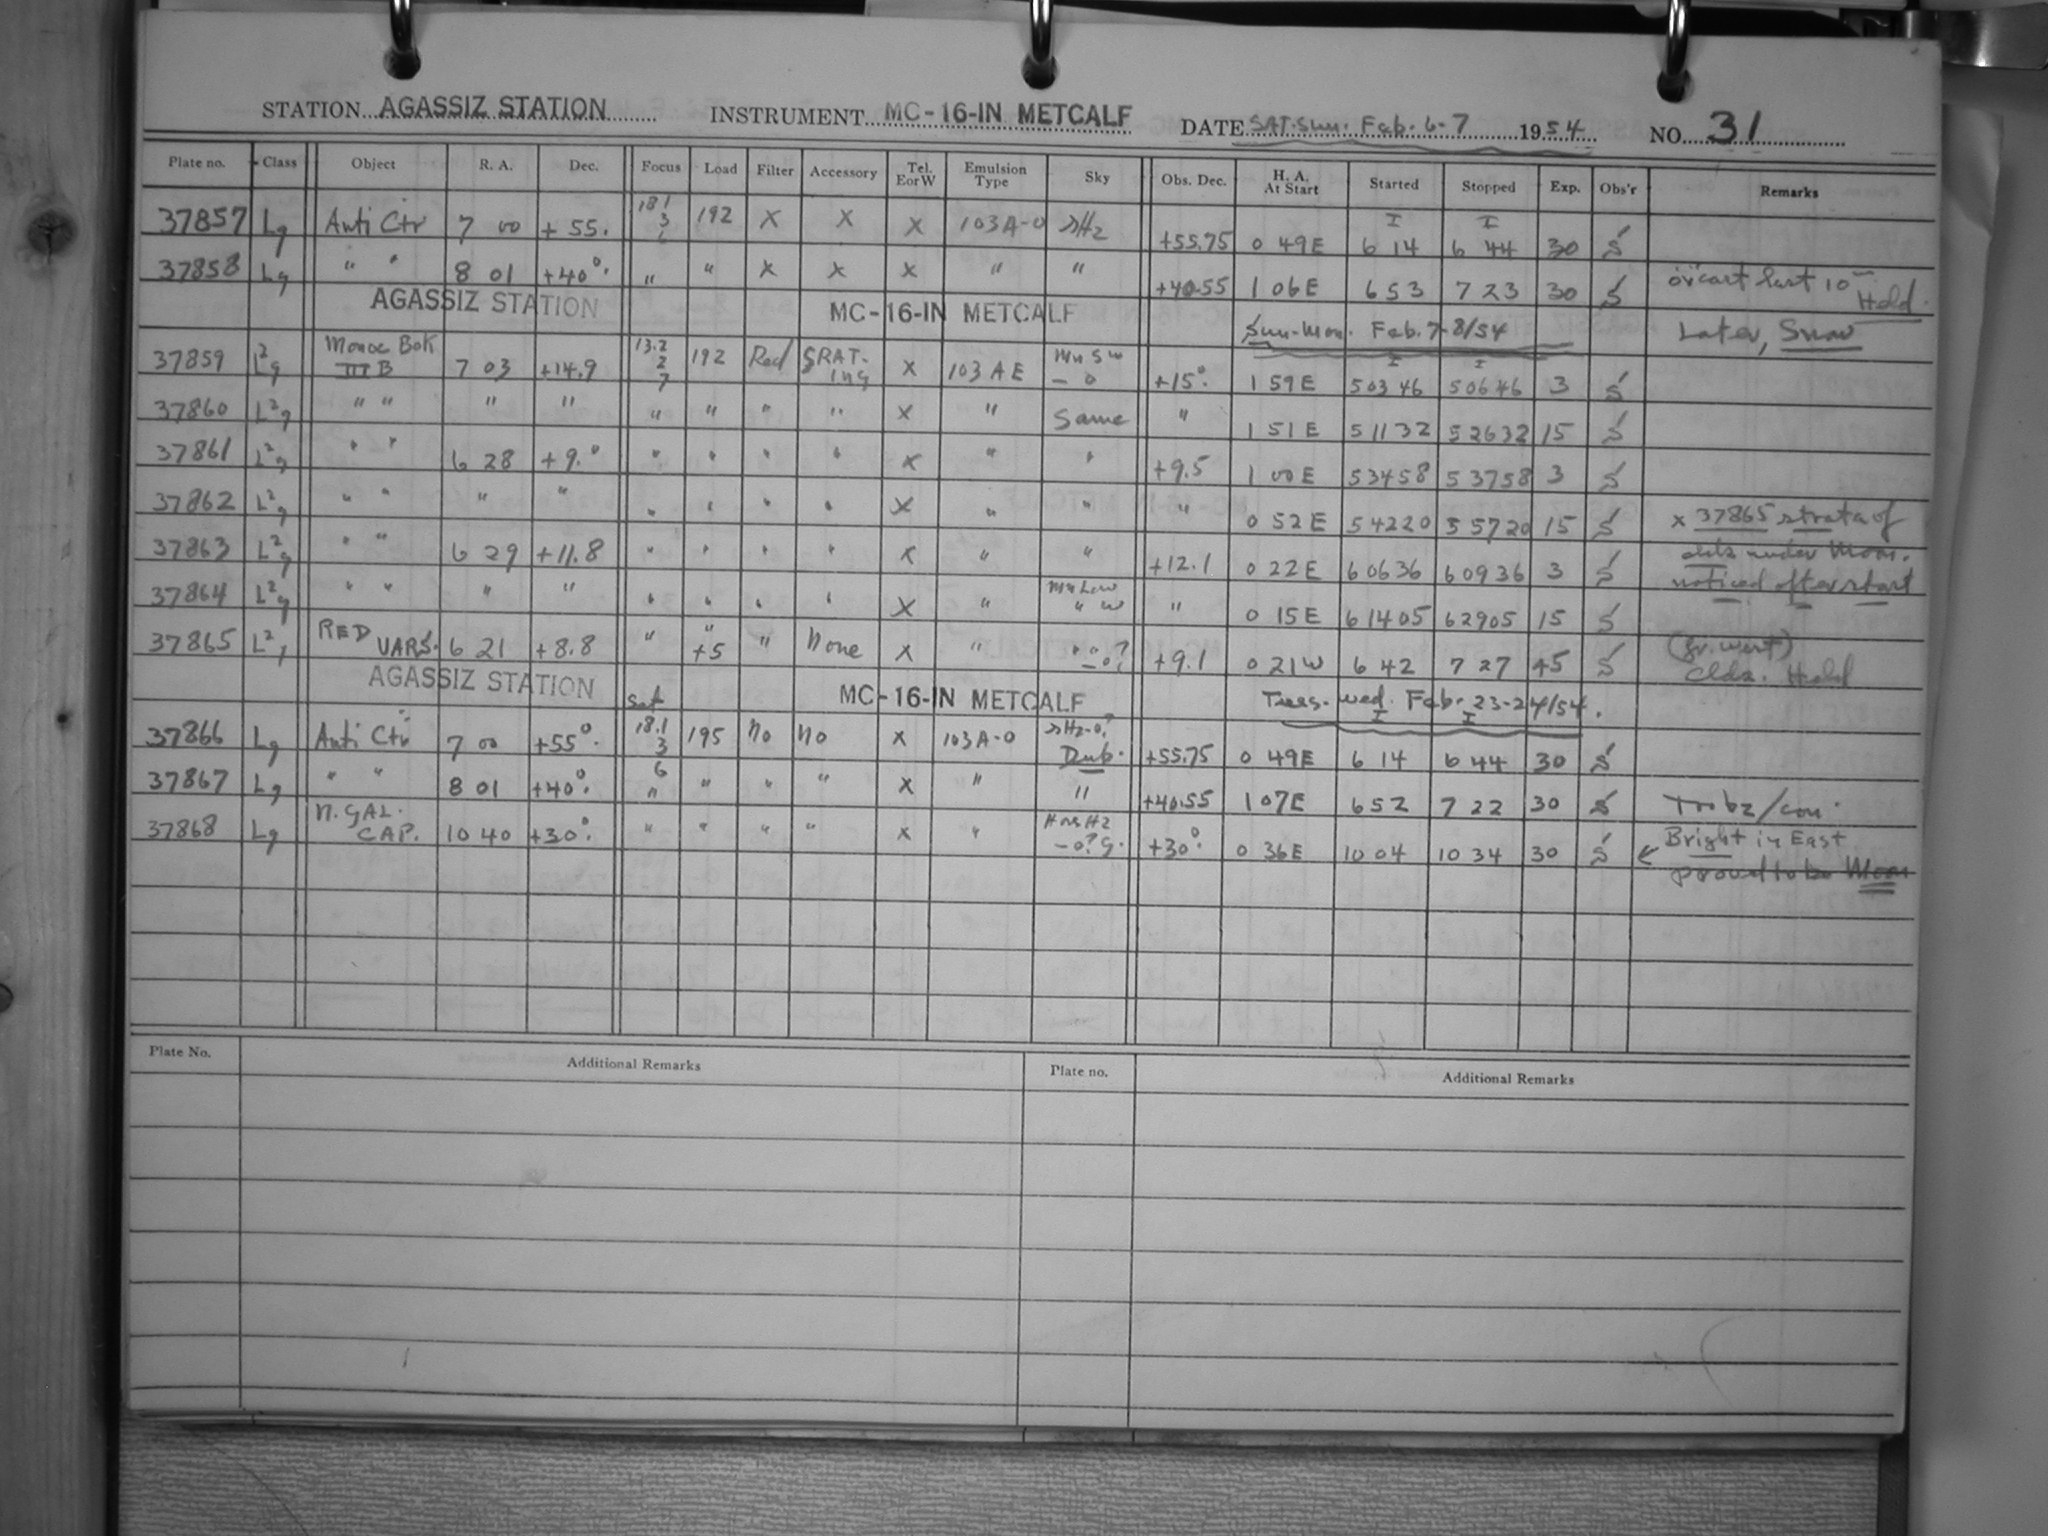 STATION AGASSIZ STATION INSTRUMENT MC-16-IN METCALF DATE SAT-Sun. Feb. 6-7 1954 NO. 31
Plate no. Class Object R. A. Dec. Focus Load Filter Accessory Tel. E or W Emulsion Type Sky Obs. Dec. H. A. At Start Started Stopped Exp. Obs'r Remarks
37857 Lg Anti Ctr 7 00 +55. 18.1 3 6 192 X X X 103A-O +55.75 0 49E 6 14 6 44 30 S
37858 Lg " " 8 01 +40°. " " X X X " " +40.55 1 06E 6 53 7 23 30 S ov'cast last 10 m Hold.
AGASSIZ STATION MC-16-IN METCALF Sun-Mon. Feb. 7-8/54 Later, Snow
37859 L²g Monoc Bok III B 7 03 +14.9 13.2 2 7 192 Red GRATING X 103AE Mn Sw - 0 +15°. 1 59E 5 03 46 5 06 46 3 S
37860 L²g " " " " " " " " X " Same " 1 51E 5 11 32 5 26 32 15 S
37861 L²g " " 6 28 +9.° " " " " X " " +9.5 1 00E 5 34 58 5 37 58 3 S
37862 L²g " " " " " " " " X " " " 0 52E 5 42 20 5 57 20 15 S x 37865 strata of
37863 L²g " " 6 29 +11.8 " " " " X " " +12.1 0 22E 6 06 36 6 09 36 3 S clds under Moon.
37864 L²g " " " " " " " " X " Mn Low " W " 0 15E 6 14 05 6 29 05 15 S noticed after start
37865 L²g RED VARS. 6 21 +8.8 " " +5 " None X " +9.1 0 21W 6 42 7 27 45 S (gr. west) Clds. Hold
AGASSIZ STATION MC-16-IN METCALF Tues.-Wed. Feb. 23-24/54.
37866 Lg Anti Ctr 7 00 +55°. Set 18.1 3 6 195 No No X 103A-O Dub. +55.75 0 49E 6 14 6 44 30 S
37867 Lg " " 8 01 +40°. " " " " X " " +40.55 1 07E 6 52 7 22 30 S
37868 Lg N. GAL. CAP. 10 40 +30°. " " " " X " - 0? G. +30°. 0 36E 10 04 10 34 30 S Bright in East
proved to be Moon
Plate No. Additional Remarks Plate no. Additional Remarks